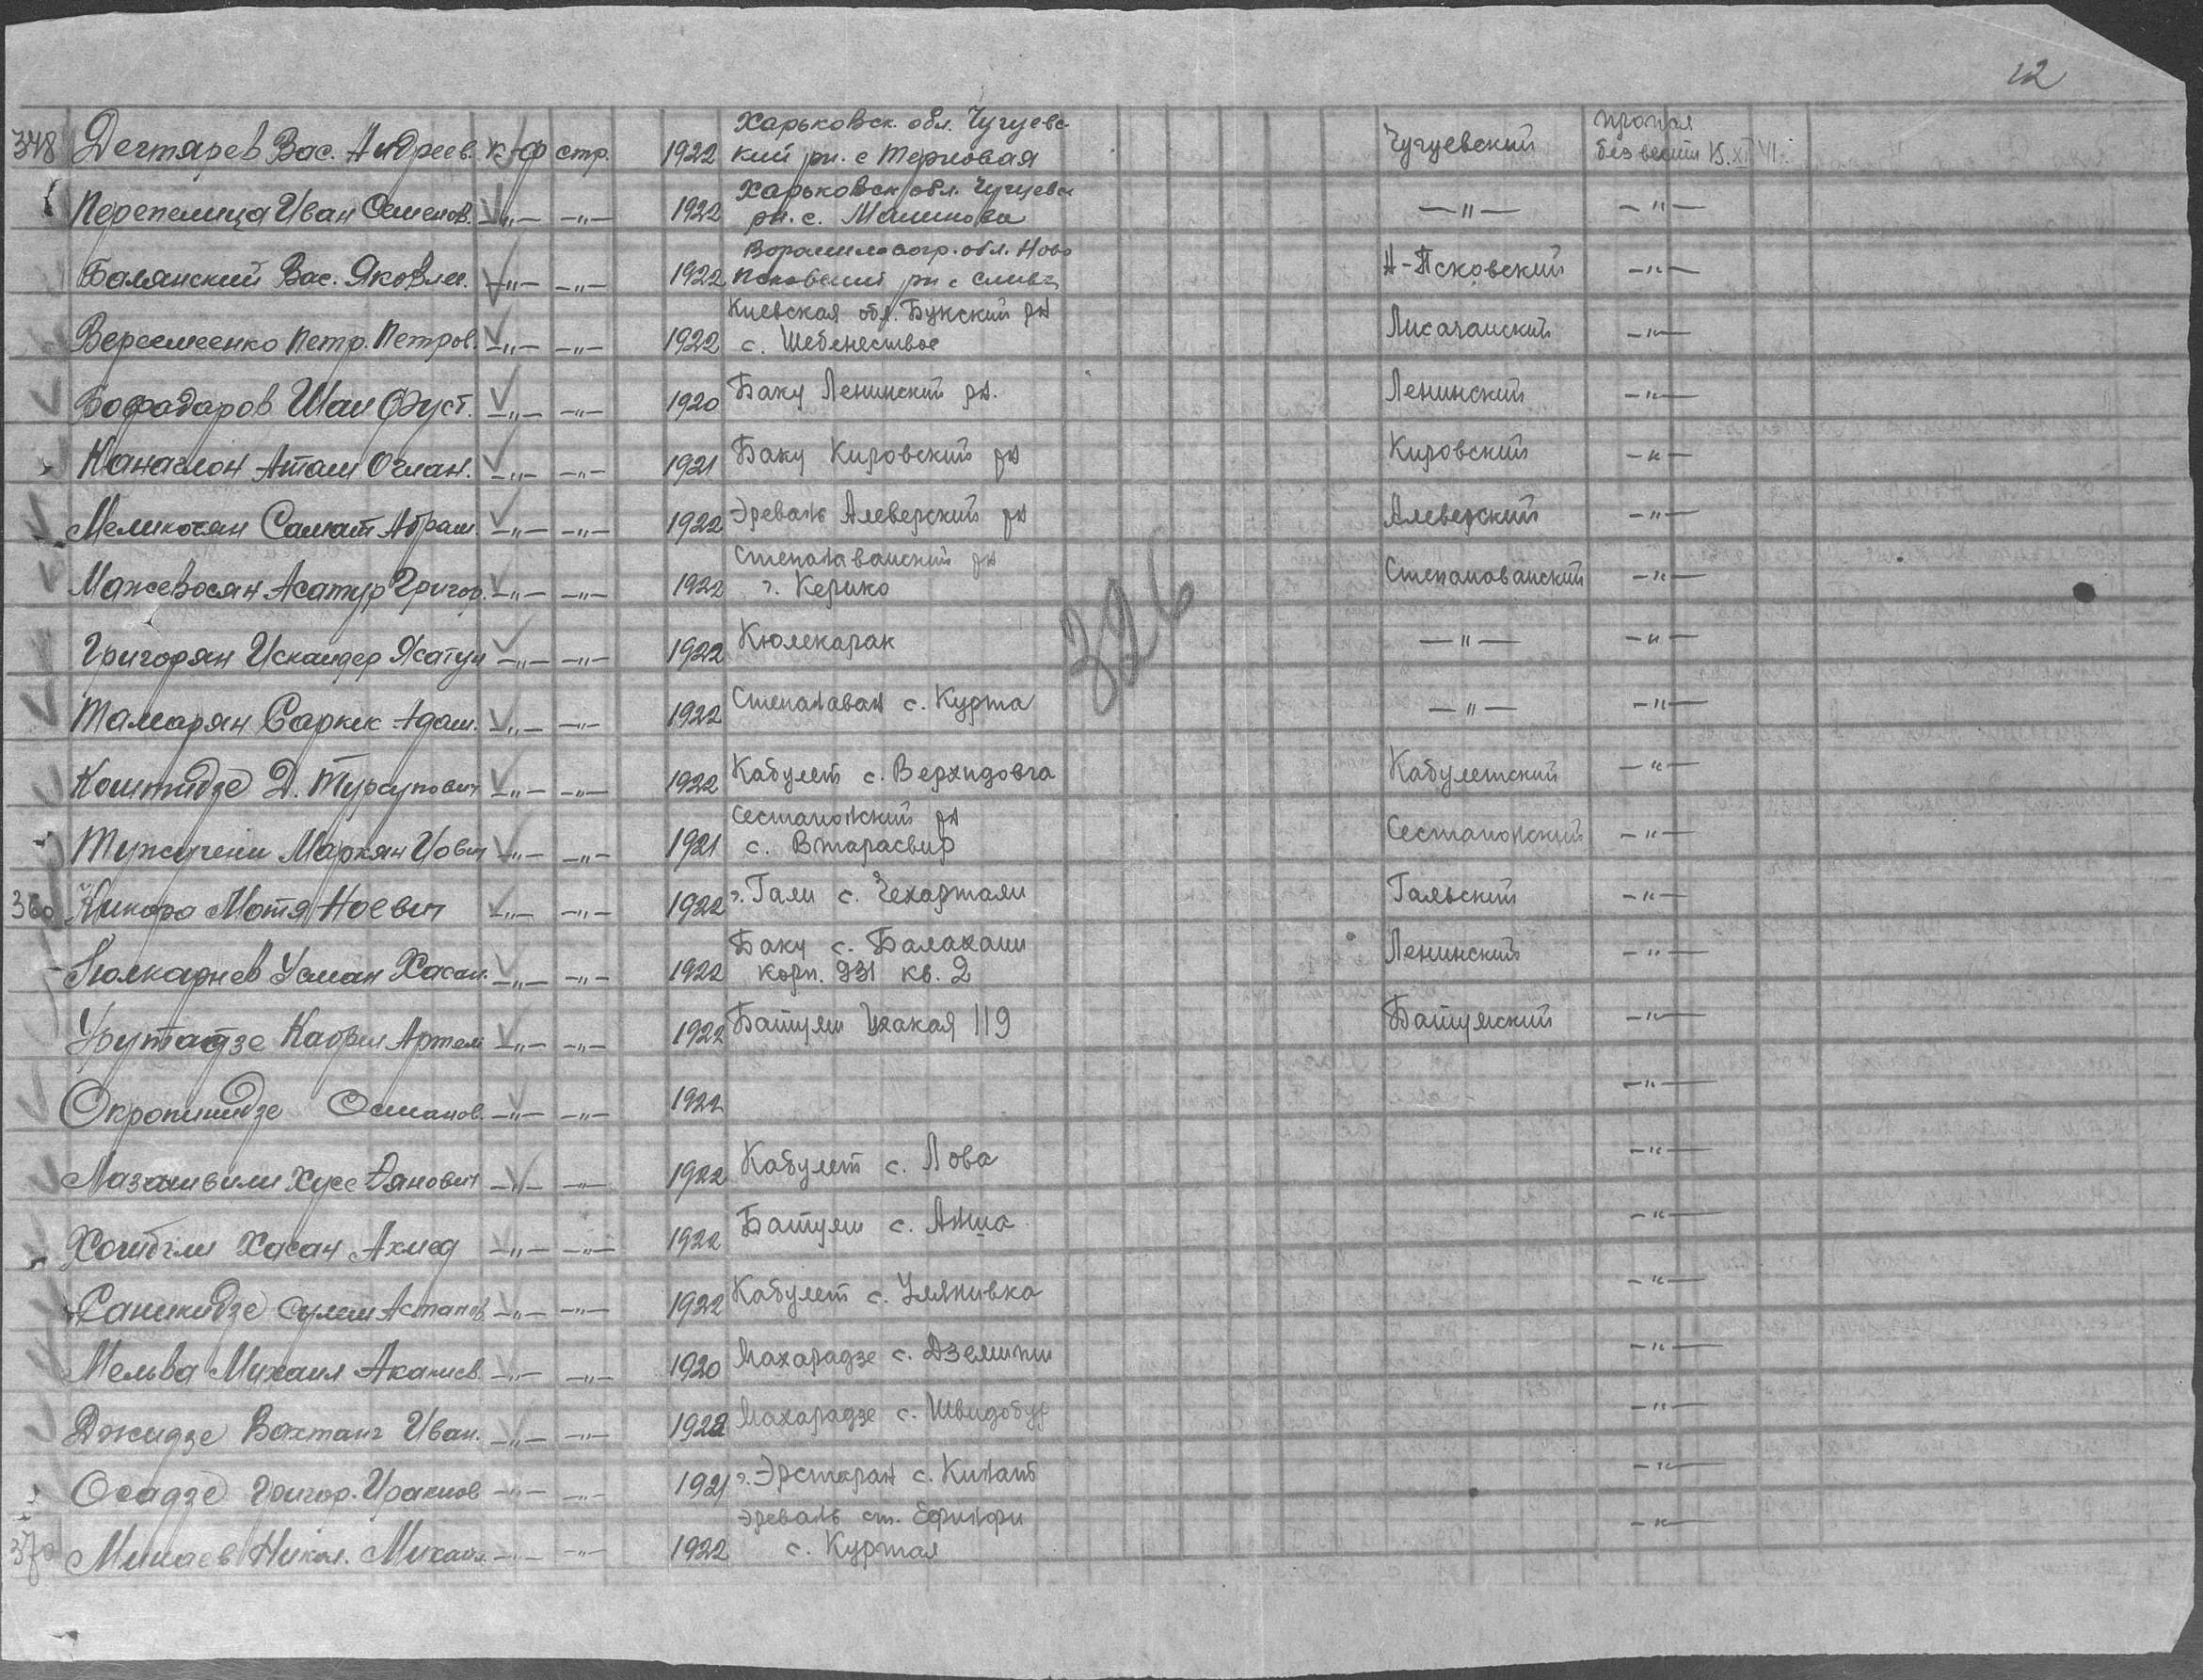 12
348 Дегтярев Вас. Андреев. к-ф стр. 1922 Харьковск. обл. Чугуевс- Чугуевский пропал
кий рн. с Терновая без вести 15.XI 41.
Перепелица Иван Семенов. —"— —"— 1922 Харьковск обл. Чугуевск —"— —"—
рн. с. Малинова
Балянский Вас. Яковлев. —"— —"— 1922 Ворошиловогр. обл. Ново Н-Псковский —"—
Псковский рн с
Веремеенко Петр. Петров. —"— —"— 1922 Киевская обл. Букский рн Лисачанский —"—
с.
Вофадаров Шаи Фуст. —"— —"— 1920 Баку Ленинский рн. Ленинский —"—
Атам Оган. —"— —"— 1921 Баку Кировский рн Кировский —"—
Меликосян Самат Абрам. —"— —"— 1922 Эревань Алеверский рн Алеверский —"—
Мансевосян Асатур Григор. —"— —"— 1922 Степанаванский рн Степанованский —"—
г. Керико
Григорян Искандер Ясатун —"— —"— 1922 Кюлекарак —"— —"—
Тамарян Саркис Адам. —"— —"— 1922 Степанаван с. Курта —"— —"—
Коштидзе Д. Турсунович —"— —"— 1922 Кабулет с. Верхидовга Кабулетский —"—
Маркян Иович —"— —"— 1921 Сестапонский рн Сестапонский —"—
с. Втарасвир
360 Кикора Мотя Ноевич —"— —"— 1922 г. Гали с. Чехартали Гальский —"—
Усман Хасан. —"— —"— 1922 Баку с. Балахани Ленинский —"—
корп. 931 кв. 2
Урутадзе Кабрил Артем —"— —"— 1922 Батуми Цхакая 119 Батумский —"—
Окропиидзе Османов. —"— —"— 1922 —"—
Мазашвили Хусе Дянович —"— —"— 1922 Кабулет с. Лова —"—
Хасан Ахмед —"— —"— 1922 Батуми с. —"—
Саникидзе Сулем Астанов. —"— —"— 1922 Кабулет с. Улянивка —"—
Мельва Михаил Акакиев. —"— —"— 1920 Махарадзе с. Дземити —"—
Джидзе Вахтанг Иван. —"— —"— 1922 Махарадзе с. Швидобур —"—
Осадзе Григор. Ираклов —"— —"— 1921 г. с. —"—
370 Минаев Никол. Михайл. —"— —"— 1922 Эревань ст. —"—
с. Куртал
326